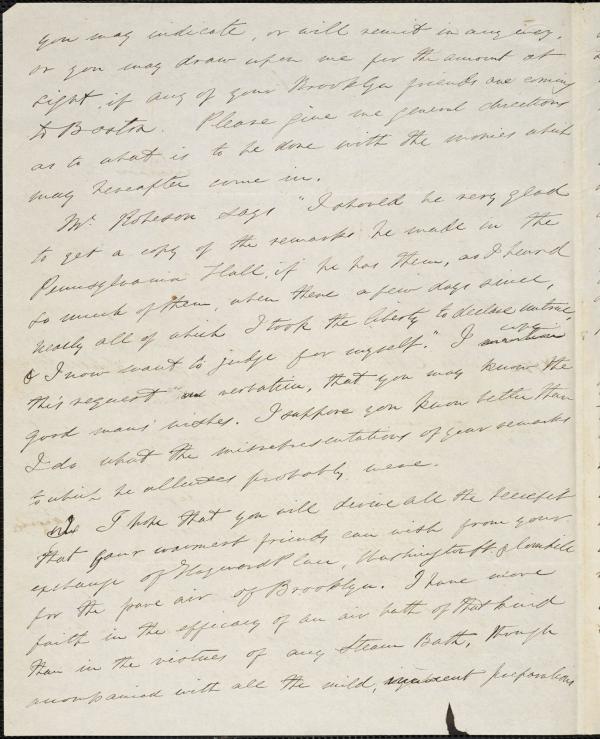 you may indicate, or will remit in any way,
or you may draw upon me for the amount at
sight, if any of your Brooklyn friends are coming
to Boston. Please give me general directions
as to what is to be done with the monies which
may hereafter come in.
Mr. Robeson says "I should be very glad
to get a copy of the remarks he made in the
Pennsylvania Hall, if he has them, as I heard
so much of them, when there a few days since,
nearly all of which I took the liberty to declare untrue,
& I now want to judge for myself." I give
this request verbatim, that you may know the
good mans' wishes. I suppose you know better than
I do what the misrepresentations of your remarks
to which he alludes probably were.
I hope that you will derive all the benefit
that your warmest friends can wish from your
exchange of Hayward Place, Washington St. & Cornhill
for the pure air of Brooklyn. I have more
faith in the efficacy of an air bath of that kind
than in the virtues of any Steam Bath, though
accompanied with all the mild, preparations